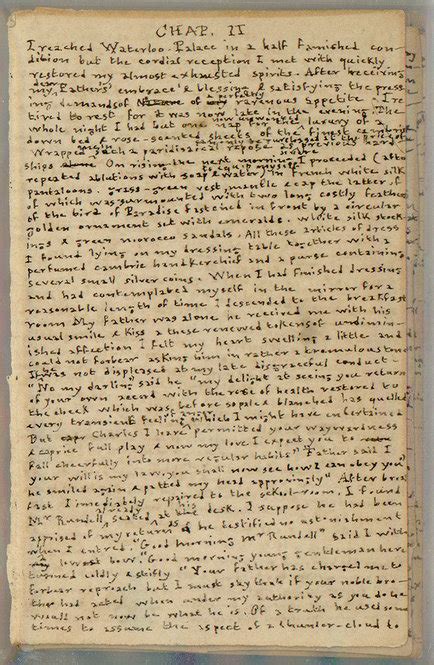 CHAP. II
I reached Waterloo-Palace in a half famished con-
dition but the cordial reception I met with quickly
restored my almost exhausted spirits. After receiving
my Fathers' embrace & blessing & satisfying the press
ing demands of a ravenous appetite I re
tired to rest for it was now late in the evening. The
whole night I had but one nap for the luxury of a
down bed & rose-scented sheets of the finest cambric
Wrapped
ships On rising the next morning I proceeded (after
repeated ablutions with soap & water) in French white silk
pantaloons. grass-green vest, mantle & cap the latter of
of which was surmounted with two long costly feathers
of the bird of Paradise fastened in front by a circular
golden ornament set with emeralds. white silk stock
ings & green morocco sandals. All these articles of dress
I found lying on my dressing table together with a
perfumed cambric handkerchief and a purse containing
several small silver coins. When I had finished dressing
and had contemplated myself in the mirror for a
reasonable length of time I descended to the breakfast
room My father was alone he received me with his
usual smile & kiss at these renewed tokens of undimin-
ished affection I felt my heart swelling a little and
could not forbear asking him in rather a tremulous tone
if he was not displeased at my late disgraceful conduct
"No my darling" said he "my delight at seeing you return
of your own accord with the rose of health restored to
the cheek which was before so pale & blanched has quelled
every transient feeling of which I might have entertained
But Charles I have permitted your waywardness
& caprice full play & now my love I expect you to
fall cheerfully into more regular habits" "Father said I
your will is my law, you shall now see how I can obey you",
he smiled again & patted my head approvingly" After break
fast I immediately repaired to the school-room. I found
Mr Rundell already seated at his desk. I suppose he had been
apprised of my return as he testified no astonishment
when I entred. "Good morning Mr Rundell" said I with
my lowest bow. Good morning young gentleman he re
turned coldly & stiffly "Your father has charged me to
forbear reproach but I must say that if your noble bro-
ther had acted when under my authority as you do he
would not now be what he is. Of a truth he used some
times to assume the aspect of a thunder-cloud to